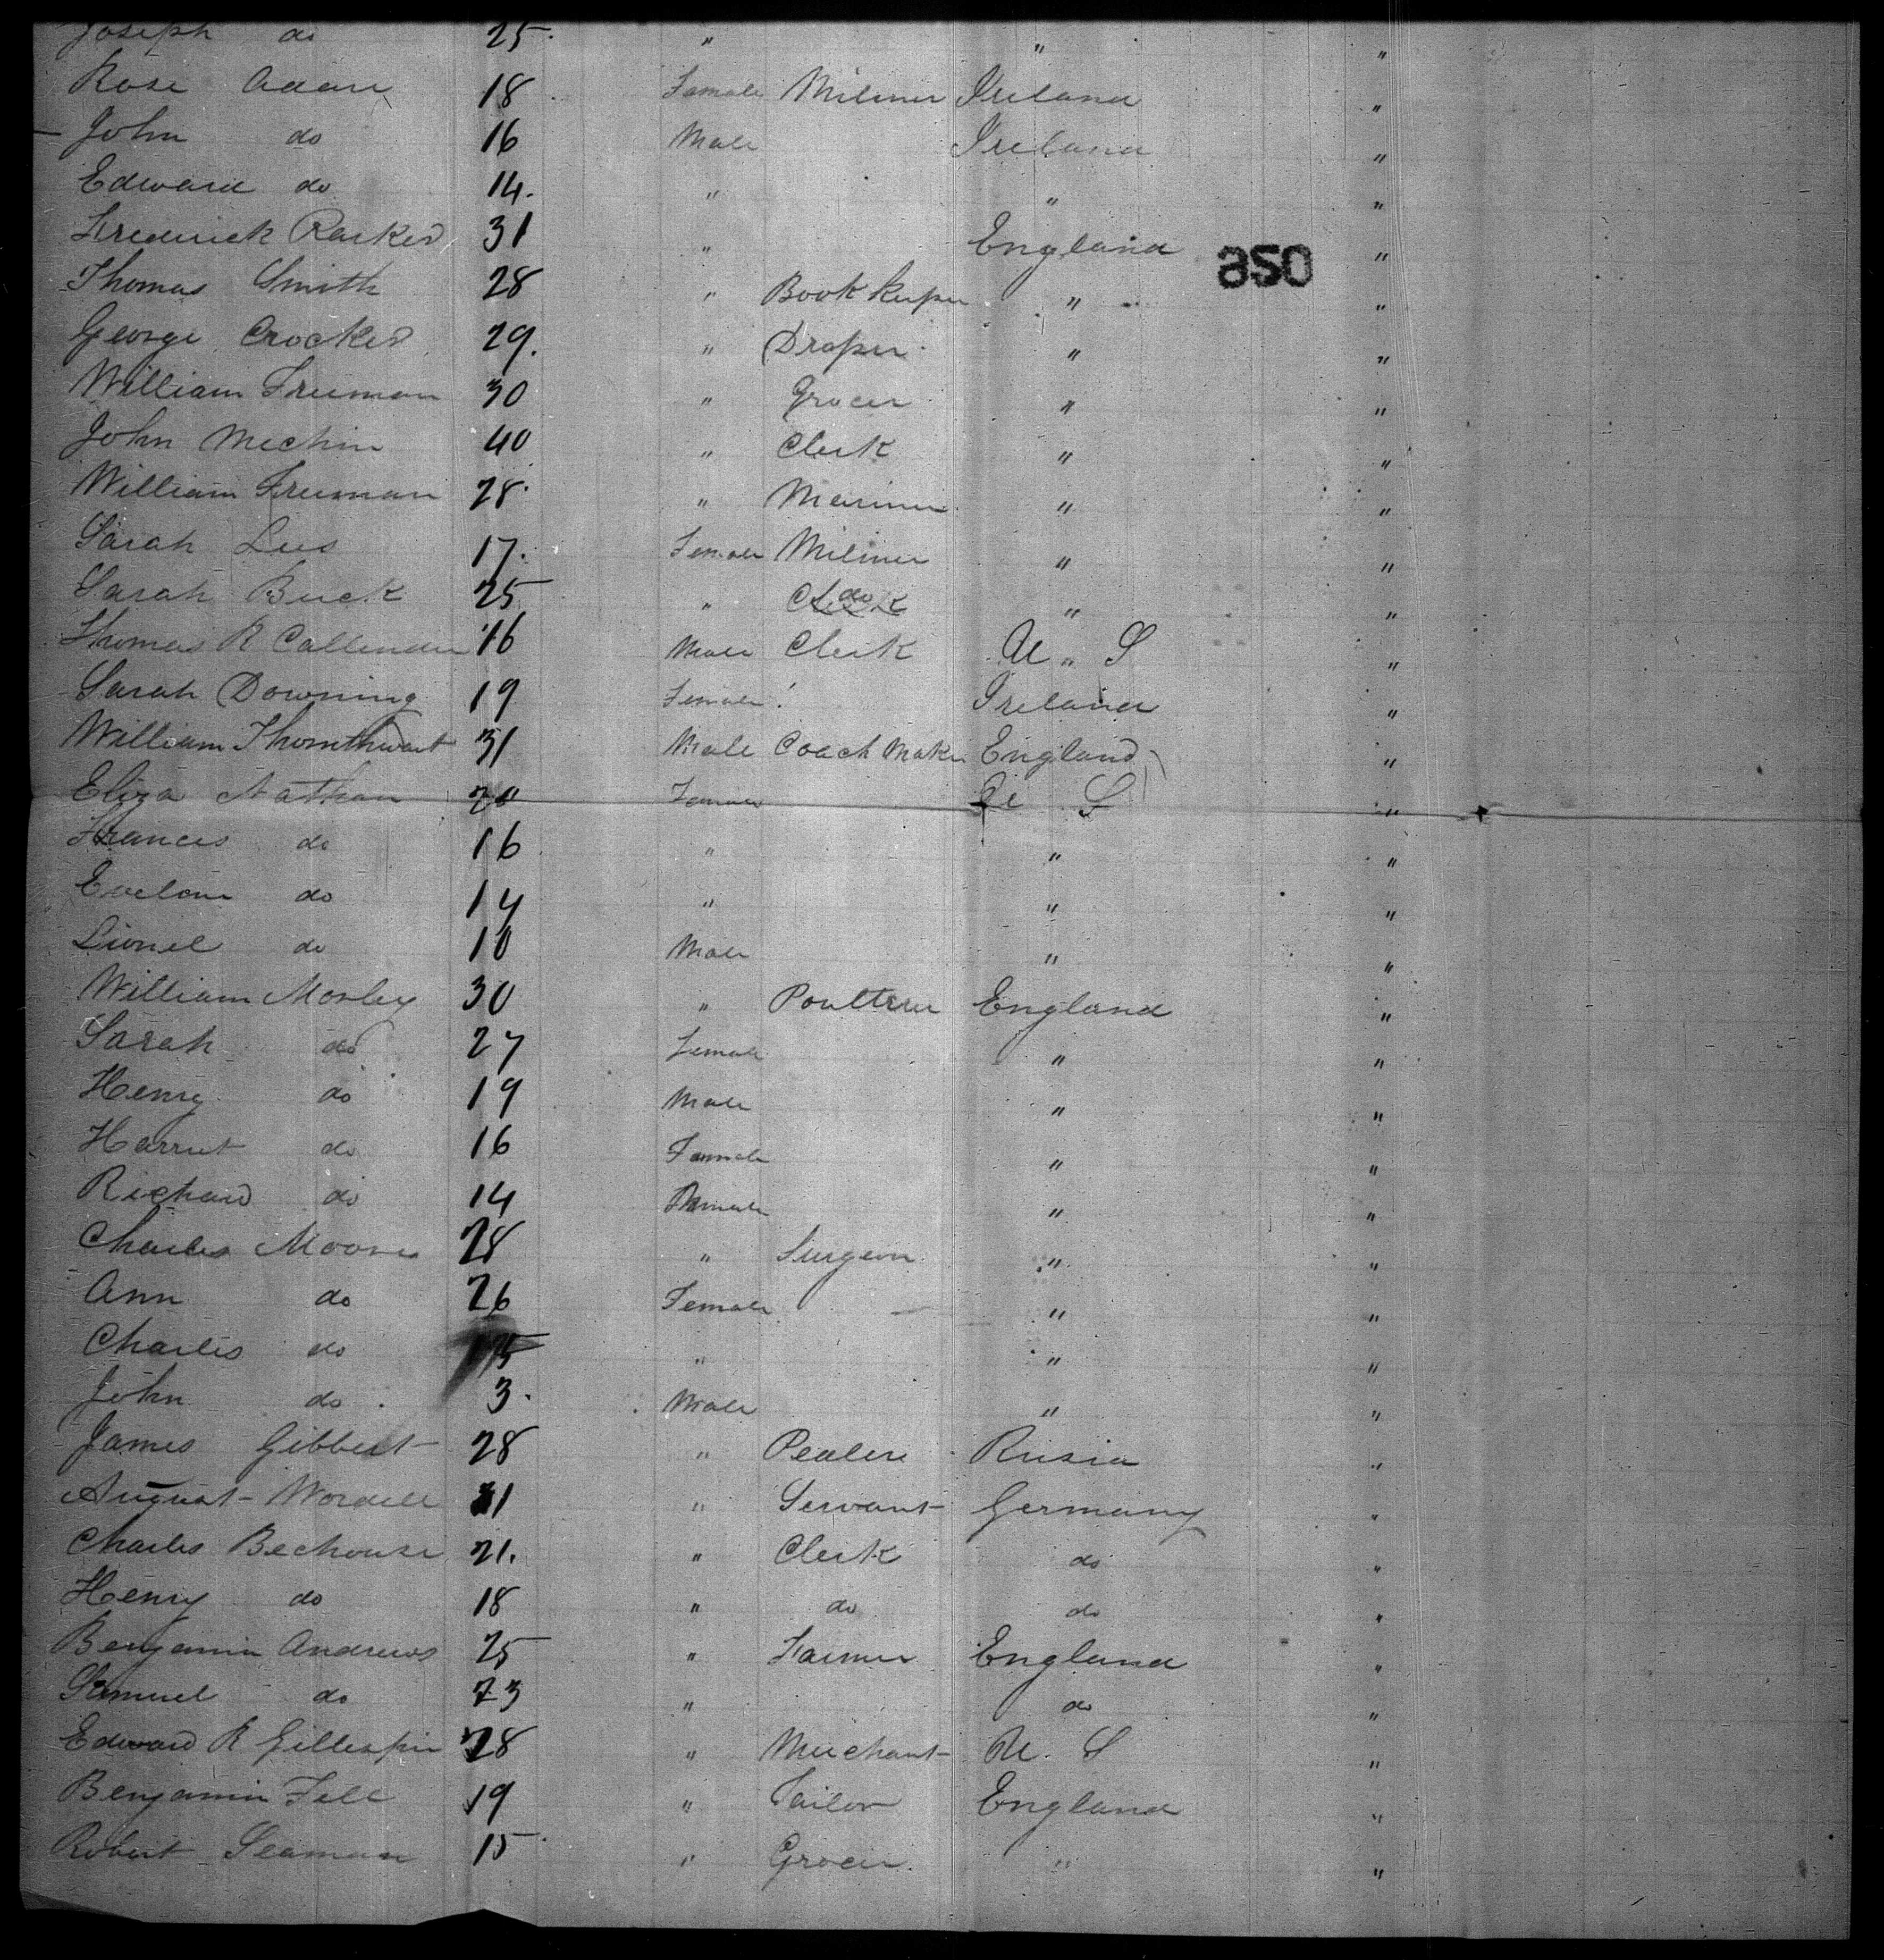 Joseph do 25 " " "
Rose Adair 18 Female Miliner Ireland "
John do 16 Male Ireland "
Edward do 14. " " "
Frederick Parker 31 " England "
850
Thomas Smith 28 " Book Keeper " "
George Crocker 29. " Draper " "
William Freeman 30 " Grocer " "
John Mechin 40 " Clerk " "
William Freeman 28 " Mariner " "
Sarah Lees 17. Female Miliner " "
Sarah Buck 25 " do " "
Thomas R Callender 16 Male Clerk U " S "
Sarah Downing 19 Female Ireland "
William Thornthwait 31 Male Coach Maker England "
Eliza Nathan 20 Female U S "
Frances do 16 " " "
Evelom do 14 " " "
Lionel do 10 Male " "
William Morley 30 " Poulterer England "
Sarah do 27 Female " "
Henry do 19 Male " "
Harriet do 16 Female " "
Richard do 14 " "
Charles Moores 28 " Surgeon " "
Ann do 26 Female " "
Charles do " " "
John do 3. Male " "
James Gibbert 28 " Rusia "
August Wordell " Servant Germany "
Charles Bechouse 21. " Clerk do "
Henry do 18 " do do "
Benjamin Andrews 25 " Farmer England "
Samuel do 23 " do "
Edward R Gillespie 28 " Merchant U. S "
Benjamin Fell 19 " Tailor England "
Robert Seaman 15 " Grocer " "